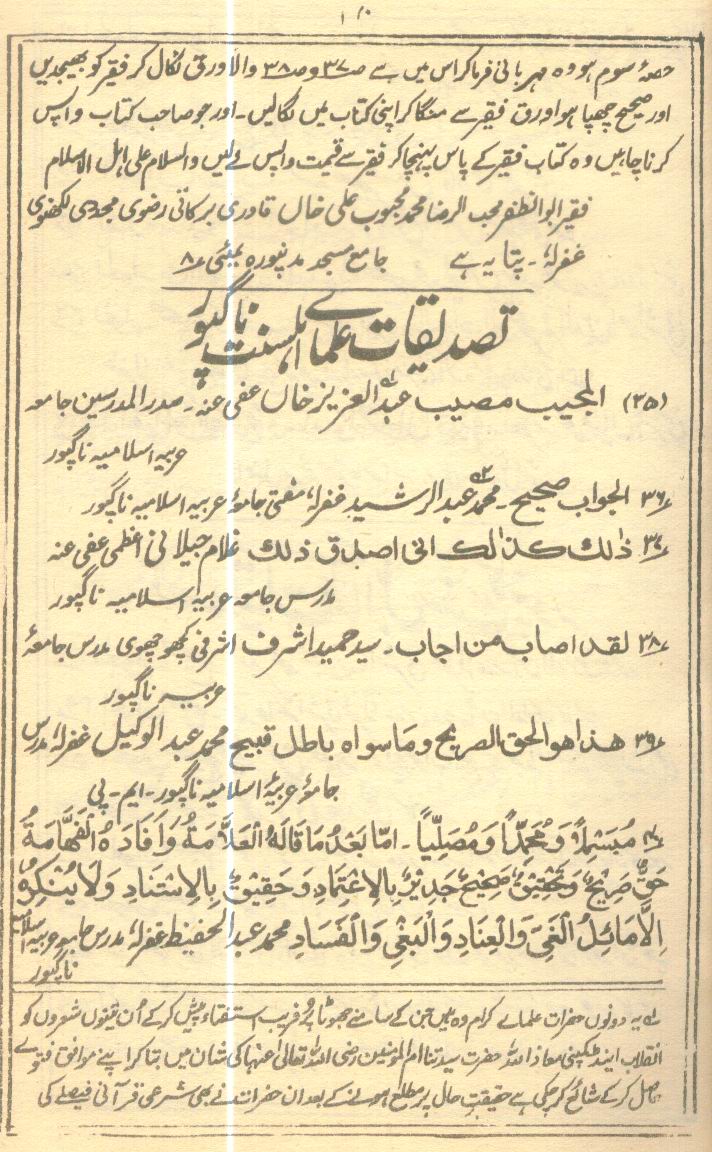 ۱۰
حصۂ سوم ہو وہ مہربانی فرما کر اس میں سے ص۳۷ و ص۳۸ والا ورق نکال کر فقیر کو بھیجدیں
اور صحیح چھپا ہوا ورق فقیر سے منگا کر اپنی کتاب میں لگالیں۔ اور جو صاحب کتاب واپس
کرنا چاہیں وہ کتاب فقیر کے پاس پہنچا کر فقیر سے قیمت واپس لے لیں والسلام علی اہل الاسلام
فقیر ابو الظفر محب الرضا محمد محبوب علی خاں قادری برکاتی رضوی مجددی لکھنوی
غفرلہٗ۔ پتا یہ ہے جامع مسجد مدنپورہ بمبئی ۸
تصدیقات علمائے اہلسنت ناگپور
(۳۵) المجیب مصیب عبدالعزیز خاں عفی عنہ۔ صدر المدرسین جامعہ
عربیہ اسلامیہ ناگپور
۳۶ الجواب صحیح۔ محمد عبدالرشید غفرلہٗ مفتی جامعۂ عربیہ اسلامیہ ناگپور
۳۷ ذٰلک کذالک انی اصدق ذلک غلام جیلانی اعظمی عفی عنہ
مدرس جامعہ عربیہ اسلامیہ ناگپور
۳۸ لقد اصاب من اجاب۔ سید حمید اشرف اشرفی کچھوچھوی مدرس جامعۂ
عربیہ ناگپور
۳۹ ھذا ھو الحق الصریح وما سواہ باطل قبیح محمد عبدالوکیل غفرلہٗ مدرس
جامعۂ عربیۂ اسلامیہ ناگپور۔ ایم۔ پی
۴۰ مُبَسْمِلًا وَّمُحَمِّدًا وَّمُصَلِّیًا۔ اَمَّا بَعْدُ مَا قَالَہُ الْعَلَّامَۃُ وَاَفَادَہُ الْفَھَّامَۃُ
حَقٌّ صَرِیْحٌ وَّتَحْقِیْقٌ صَحِیْحٌ جَدِیْرٌ بِالْاِعْتِمَادِ وَحَقِیْقٌ بِالْاِسْتِنَادِ وَلَا یُنْکِرُہٗ
اِلَّا مَائِلُ الْغَیِّ وَالْعِنَادِ وَالْبَغْیِ وَالْفَسَادِ محمد عبدالحفیظ غفرلہٗ مدرس جامعہ عربیہ اسلامیہ
ناگپور
لہ یہ دونوں حضرات علمائے کرام وہ ہیں جن کے سامنے جھوٹا پُرفریب استفتاء پیش کر کے اُن تینوں شعروں کو
انقلاب اینڈ کمپنی معاذ اللہ حضرت سیدتنا ام المومنین رضی اللہ تعالیٰ عنہا کی شان میں بتا کر اپنے موافق فتوے
حاصل کر کے شائع کر چکی ہے حقیقت حال پر مطلع ہونے کے بعد ان حضرات نے بھی شرعی قرآنی فیصلے کی